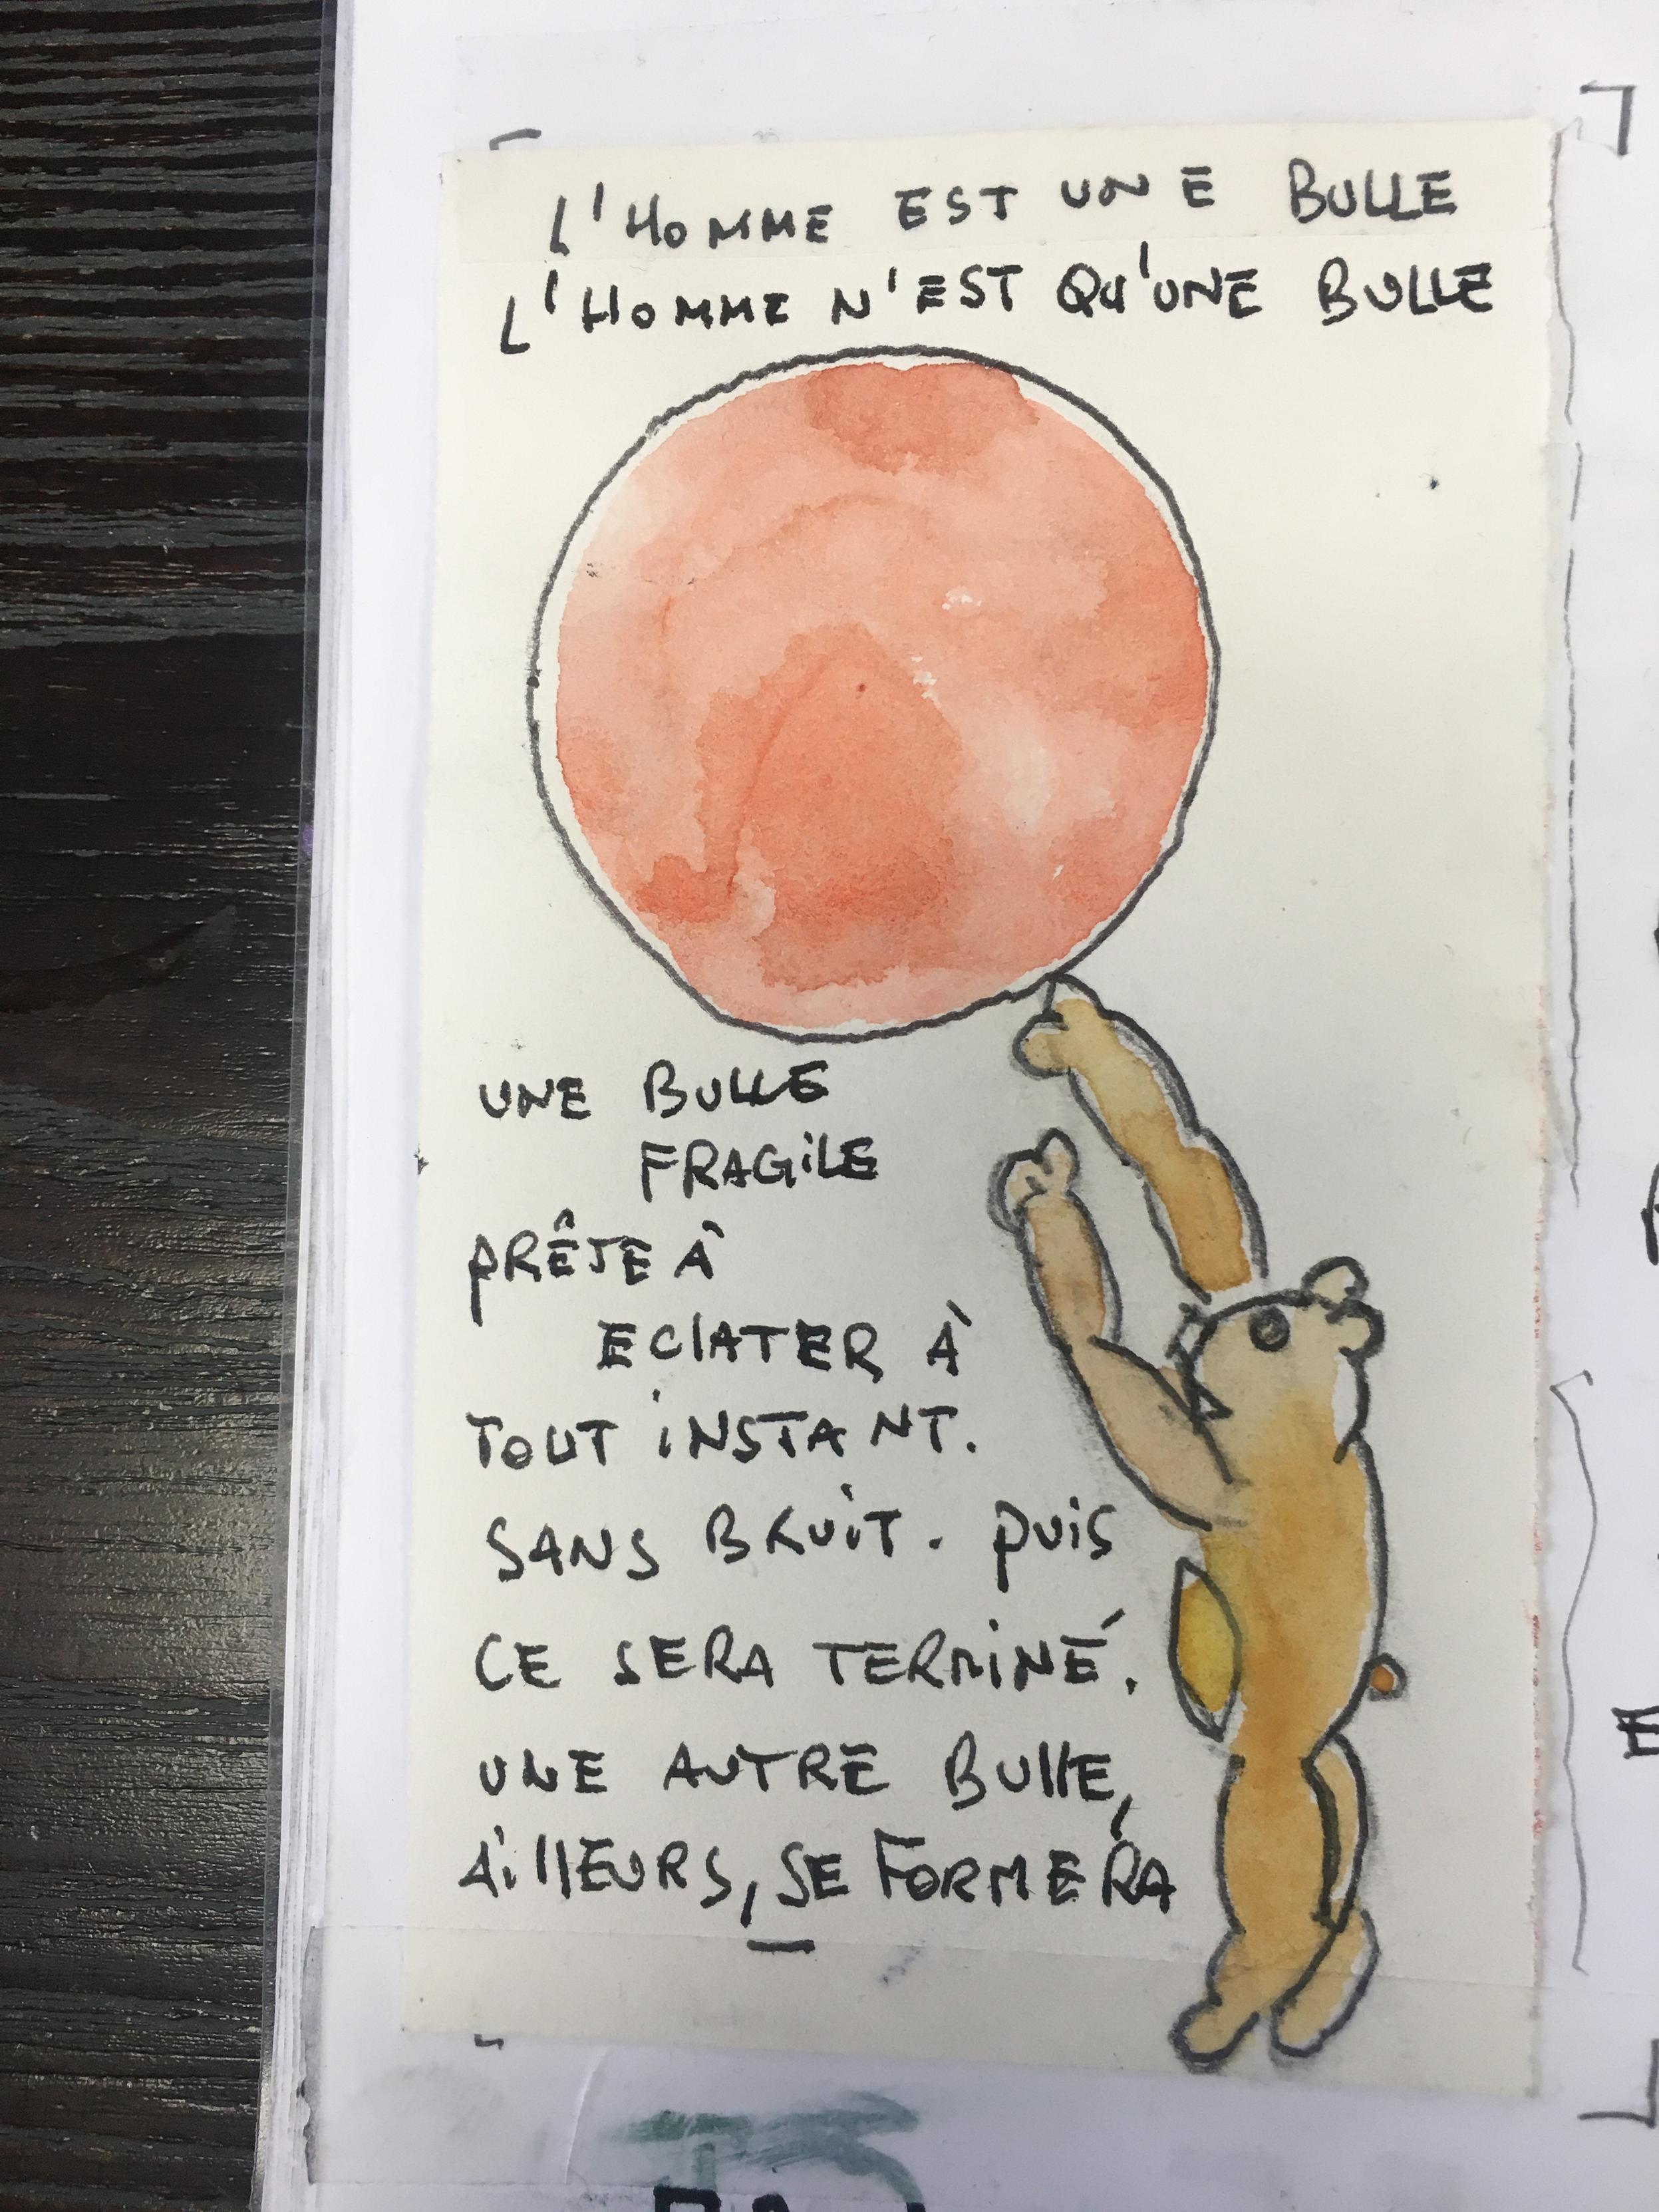 L'HOMME EST UNE BULLE
L'HOMME N'EST QU'UNE BULLE
UNE BULLE
FRAGiLE
PRÊTE À
ECLATER À
TOUT iNSTANT.
SANS BRUiT. PUiS
CE SERA TERMiNÉ.
UNE AUTRE BULLE,
AiLLEURS, SE FORMERA
E